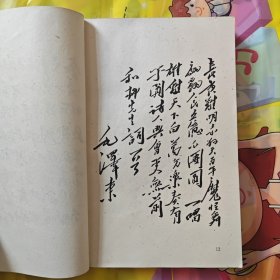 長夜難明赤縣天百年魔怪舞
翩躚人民五億不團圓一唱
雄雞天下白萬方樂奏有
于闐詩人興會更無前
和柳先生詞
毛澤東
12